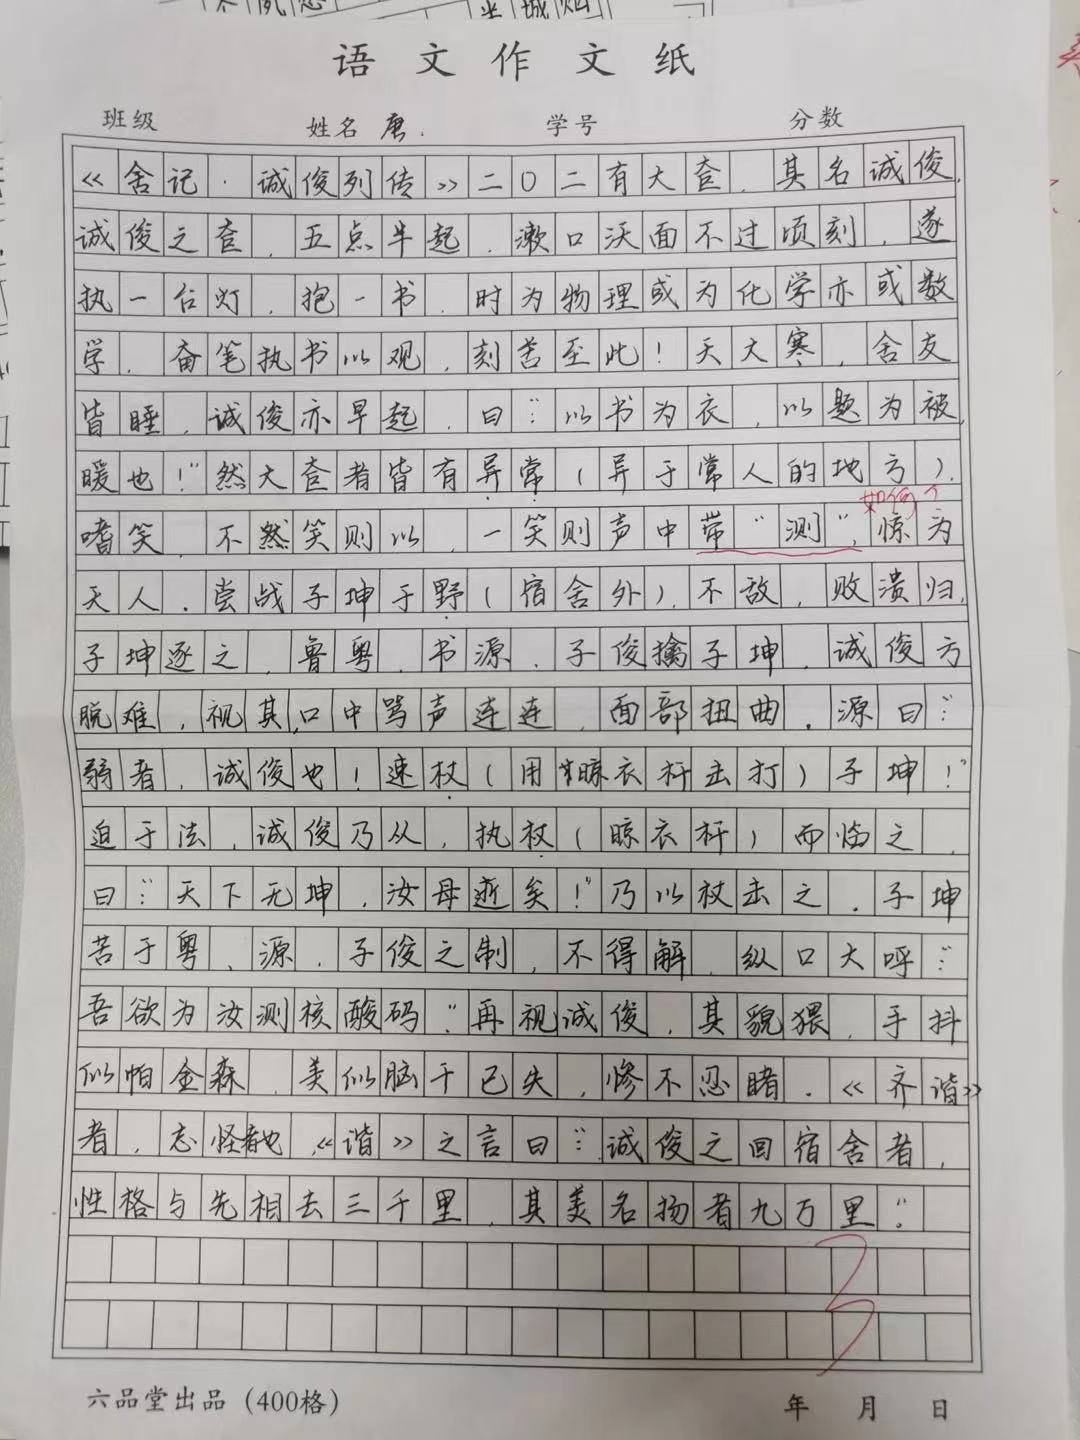 语文作文纸
班级 姓名 唐. 学号 分数
《舍记·诚俊列传》二〇二有大奆,其名诚俊,
诚俊之奆,五点半起,漱口沃面不过顷刻,遂
执一台灯,抱一书,时为物理或为化学亦或数
学,奋笔执书以观,刻苦至此!天大寒,舍友
皆睡,诚俊亦早起,曰:“以书为衣,以题为被,
暖也!”然大奆者皆有异常(异于常人的地方),
如何?
嗜笑,不然笑则以,一笑则声中带“测”,惊为
天人.尝战子坤于野(宿舍外),不敌,败溃归,
子坤逐之,鲁粤、书源、子俊擒子坤,诚俊方
脱难,视其口中骂声连连,面部扭曲.源曰:“
弱者,诚俊也!速杖(用晾衣杆击打)子坤!”
迫于法,诚俊乃从,执杖(晾衣杆)而临之,
曰:“天下无坤,汝母逝矣!”乃以杖击之.子坤
苦于粤、源、子俊之制,不得解,纵口大呼:“
吾欲为汝测核酸码.”再视诚俊,其貌猥,手抖
似帕金森,美似脑干已失,惨不忍睹.《齐谐》
者,志怪者也,《谐》之言曰:“诚俊之回宿舍者,
性格与先相去三千里,其美名扬者九万里.”
六品堂出品(400格) 年 月 日